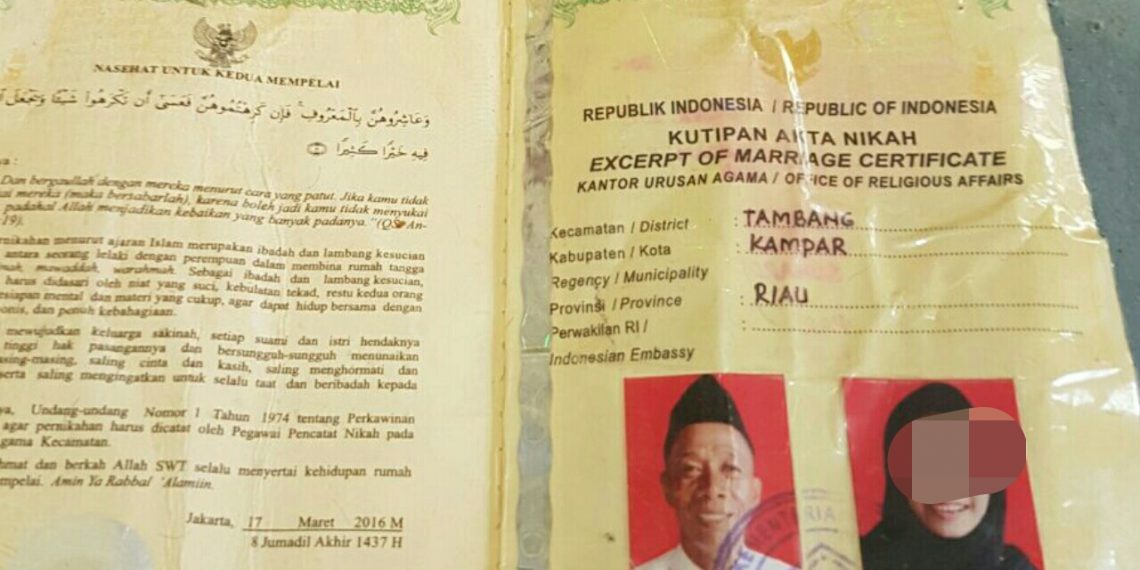 NASEHAT UNTUK KEDUA MEMPELAI
وَعَاشِرُوهُنَّ بِالْمَعْرُوفِ ۚ فَإِن كَرِهْتُمُوهُنَّ فَعَسَىٰ أَن تَكْرَهُوا شَيْئًا وَيَجْعَلَ
فِيهِ خَيْرًا كَثِيرًا ﴿١٩﴾
Dan bergaullah dengan mereka menurut cara yang patut. Jika kamu tidak
mereka (maka bersabarlah), karena boleh jadi kamu tidak menyukai
padahal Allah menjadikan kebaikan yang banyak padanya." (QS An-
19).
menurut ajaran Islam merupakan ibadah dan lambang kesucian
antara seorang lelaki dengan perempuan dalam membina rumah tangga
mawaddah, warahmah. Sebagai ibadah dan lambang kesucian,
harus didasari oleh niat yang suci, kebulatan tekad, restu kedua orang
mental dan materi yang cukup, agar dapat hidup bersama dengan
dan penuh kebahagiaan.
mewujudkan keluarga sakinah, setiap suami dan istri hendaknya
tinggi hak pasangannya dan bersungguh-sungguh menunaikan
saling cinta dan kasih, saling menghormati dan
serta saling mengingatkan untuk selalu taat dan beribadah kepada
Undang-undang Nomor 1 Tahun 1974 tentang Perkawinan
agar pernikahan harus dicatat oleh Pegawai Pencatat Nikah pada
Kecamatan.
dan berkah Allah SWT selalu menyertai kehidupan rumah
Amin Ya Rabbal 'Alamiin.
Jakarta, 17 Maret 2016 M
8 Jumadil Akhir 1437 H
REPUBLIK INDONESIA / REPUBLIC OF INDONESIA
KUTIPAN AKTA NIKAH
EXCERPT OF MARRIAGE CERTIFICATE
KANTOR URUSAN AGAMA / OFFICE OF RELIGIOUS AFFAIRS
Kecamatan / District : TAMBANG
Kabupaten / Kota : KAMPAR
Regency / Municipality
Provinsi / Province : RIAU
Perwakilan RI / :
Indonesian Embassy